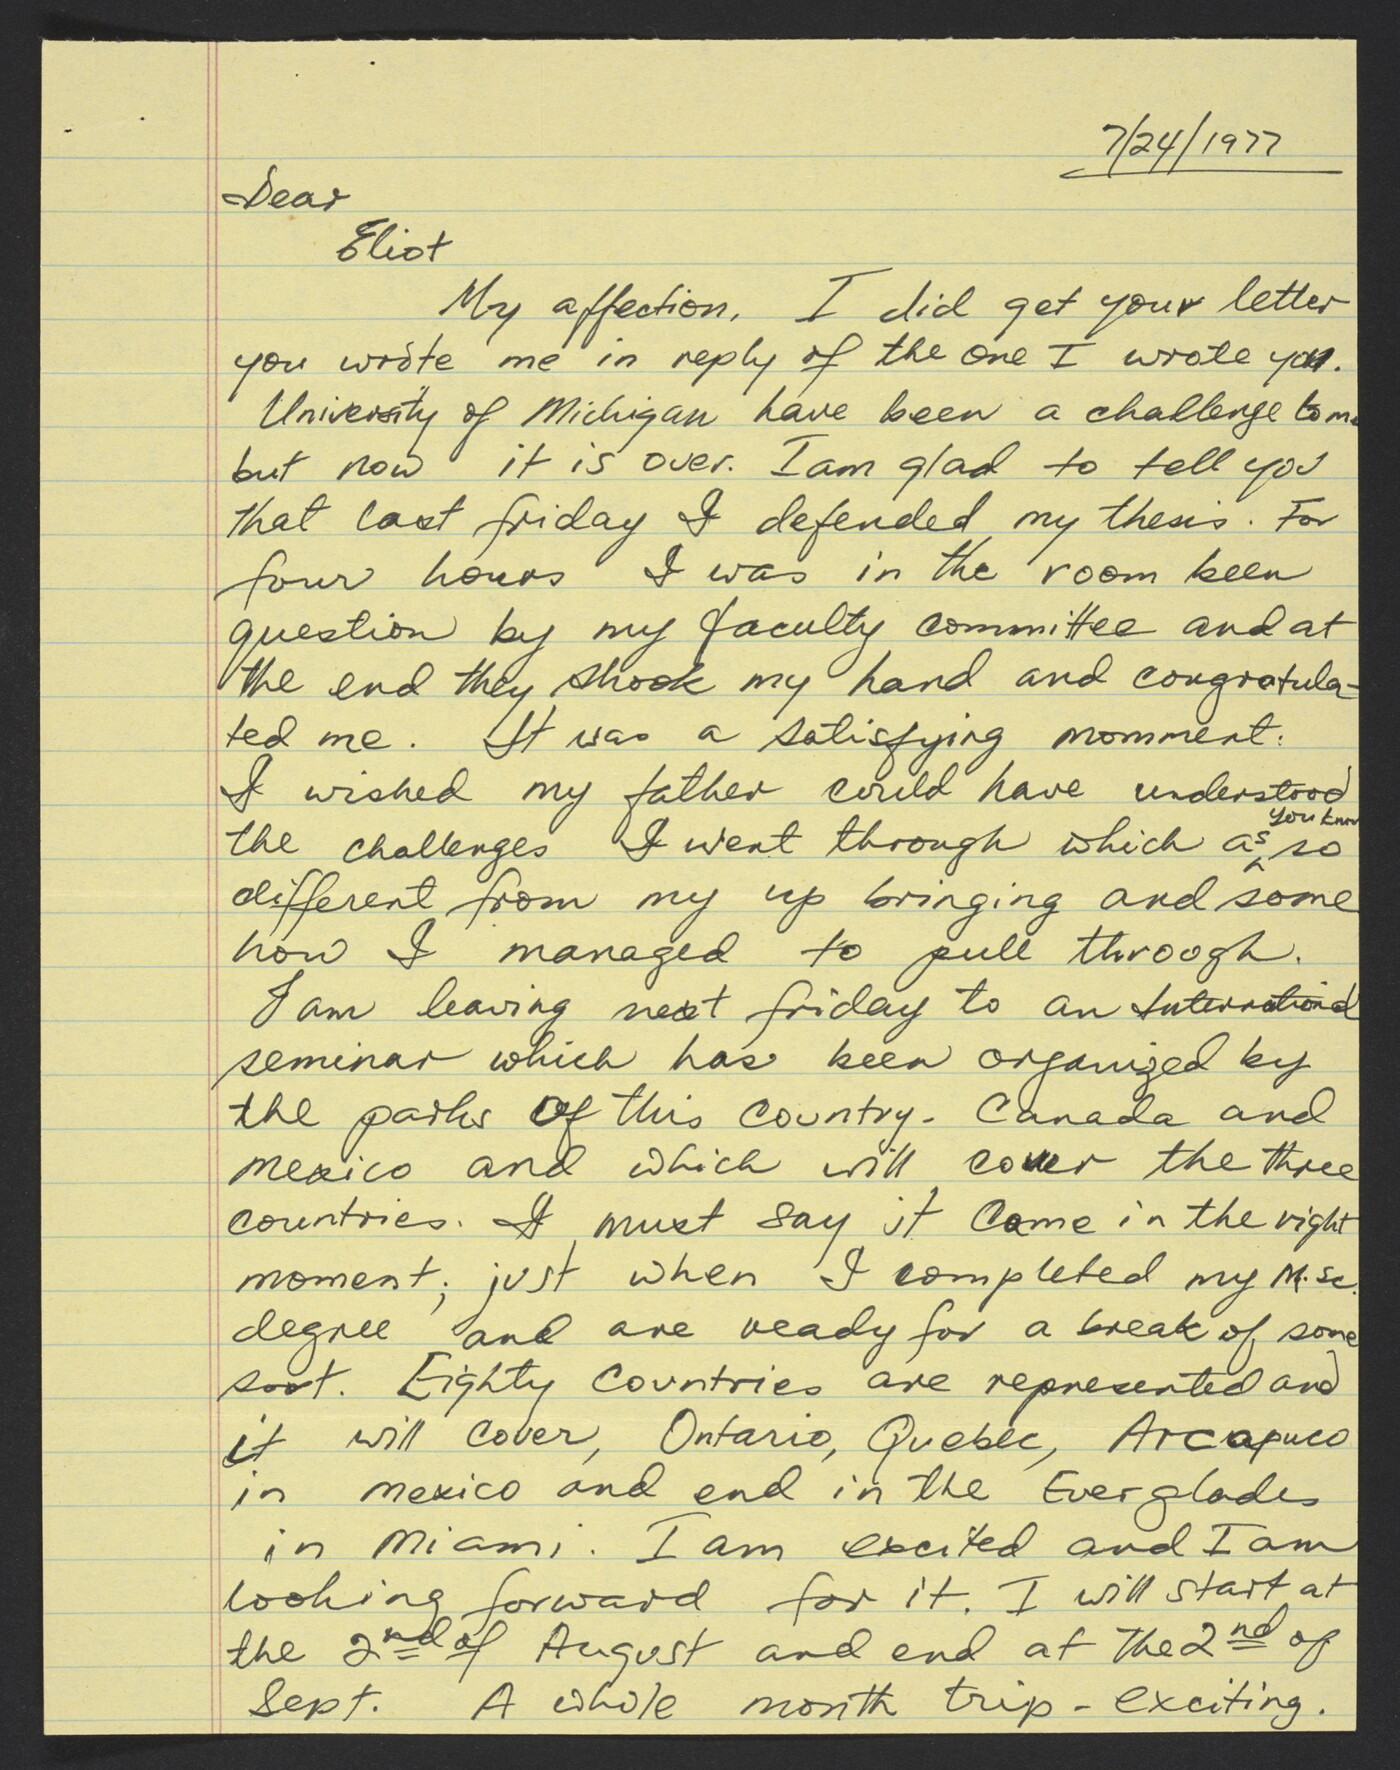 7/24/1977
Dear
Eliot
My affection. I did get your letter
you wrote me in reply of the one I wrote you.
University of Michigan have been a challenge to me
but now it is over. I am glad to tell you
that last friday I defended my thesis. For
four hours I was in the room been
question by my faculty committee and at
the end they shook my hand and congratula-
ted me. It was a satisfying momment.
I wished my father could have understood
the challenges I went through which as you know so
different from my up bringing and some
how I managed to pull through.
I am leaving next friday to an International
seminar which has been organized by
the parks of this country - Canada and
mexico and which will cover the three
countries. I must say it came in the right
moment; just when I completed my M.Sc.
degree and are ready for a break of some
sort. Eighty countries are represented and
it will cover, Ontario, Quebec, Arcapuco
in mexico and end in the Everglades
in Miami. I am excited and I am
looking forward for it. I will start at
the 2nd of August and end at the 2nd of
Sept. A whole month trip - exciting.